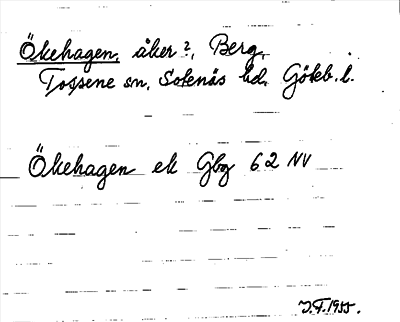 Ökehagen, åker ?, Berg,
Tossene sn, Sotenäs hd, Göteb. l.
Ökehagen ek Gbg 62 NV
J.F. 1955.